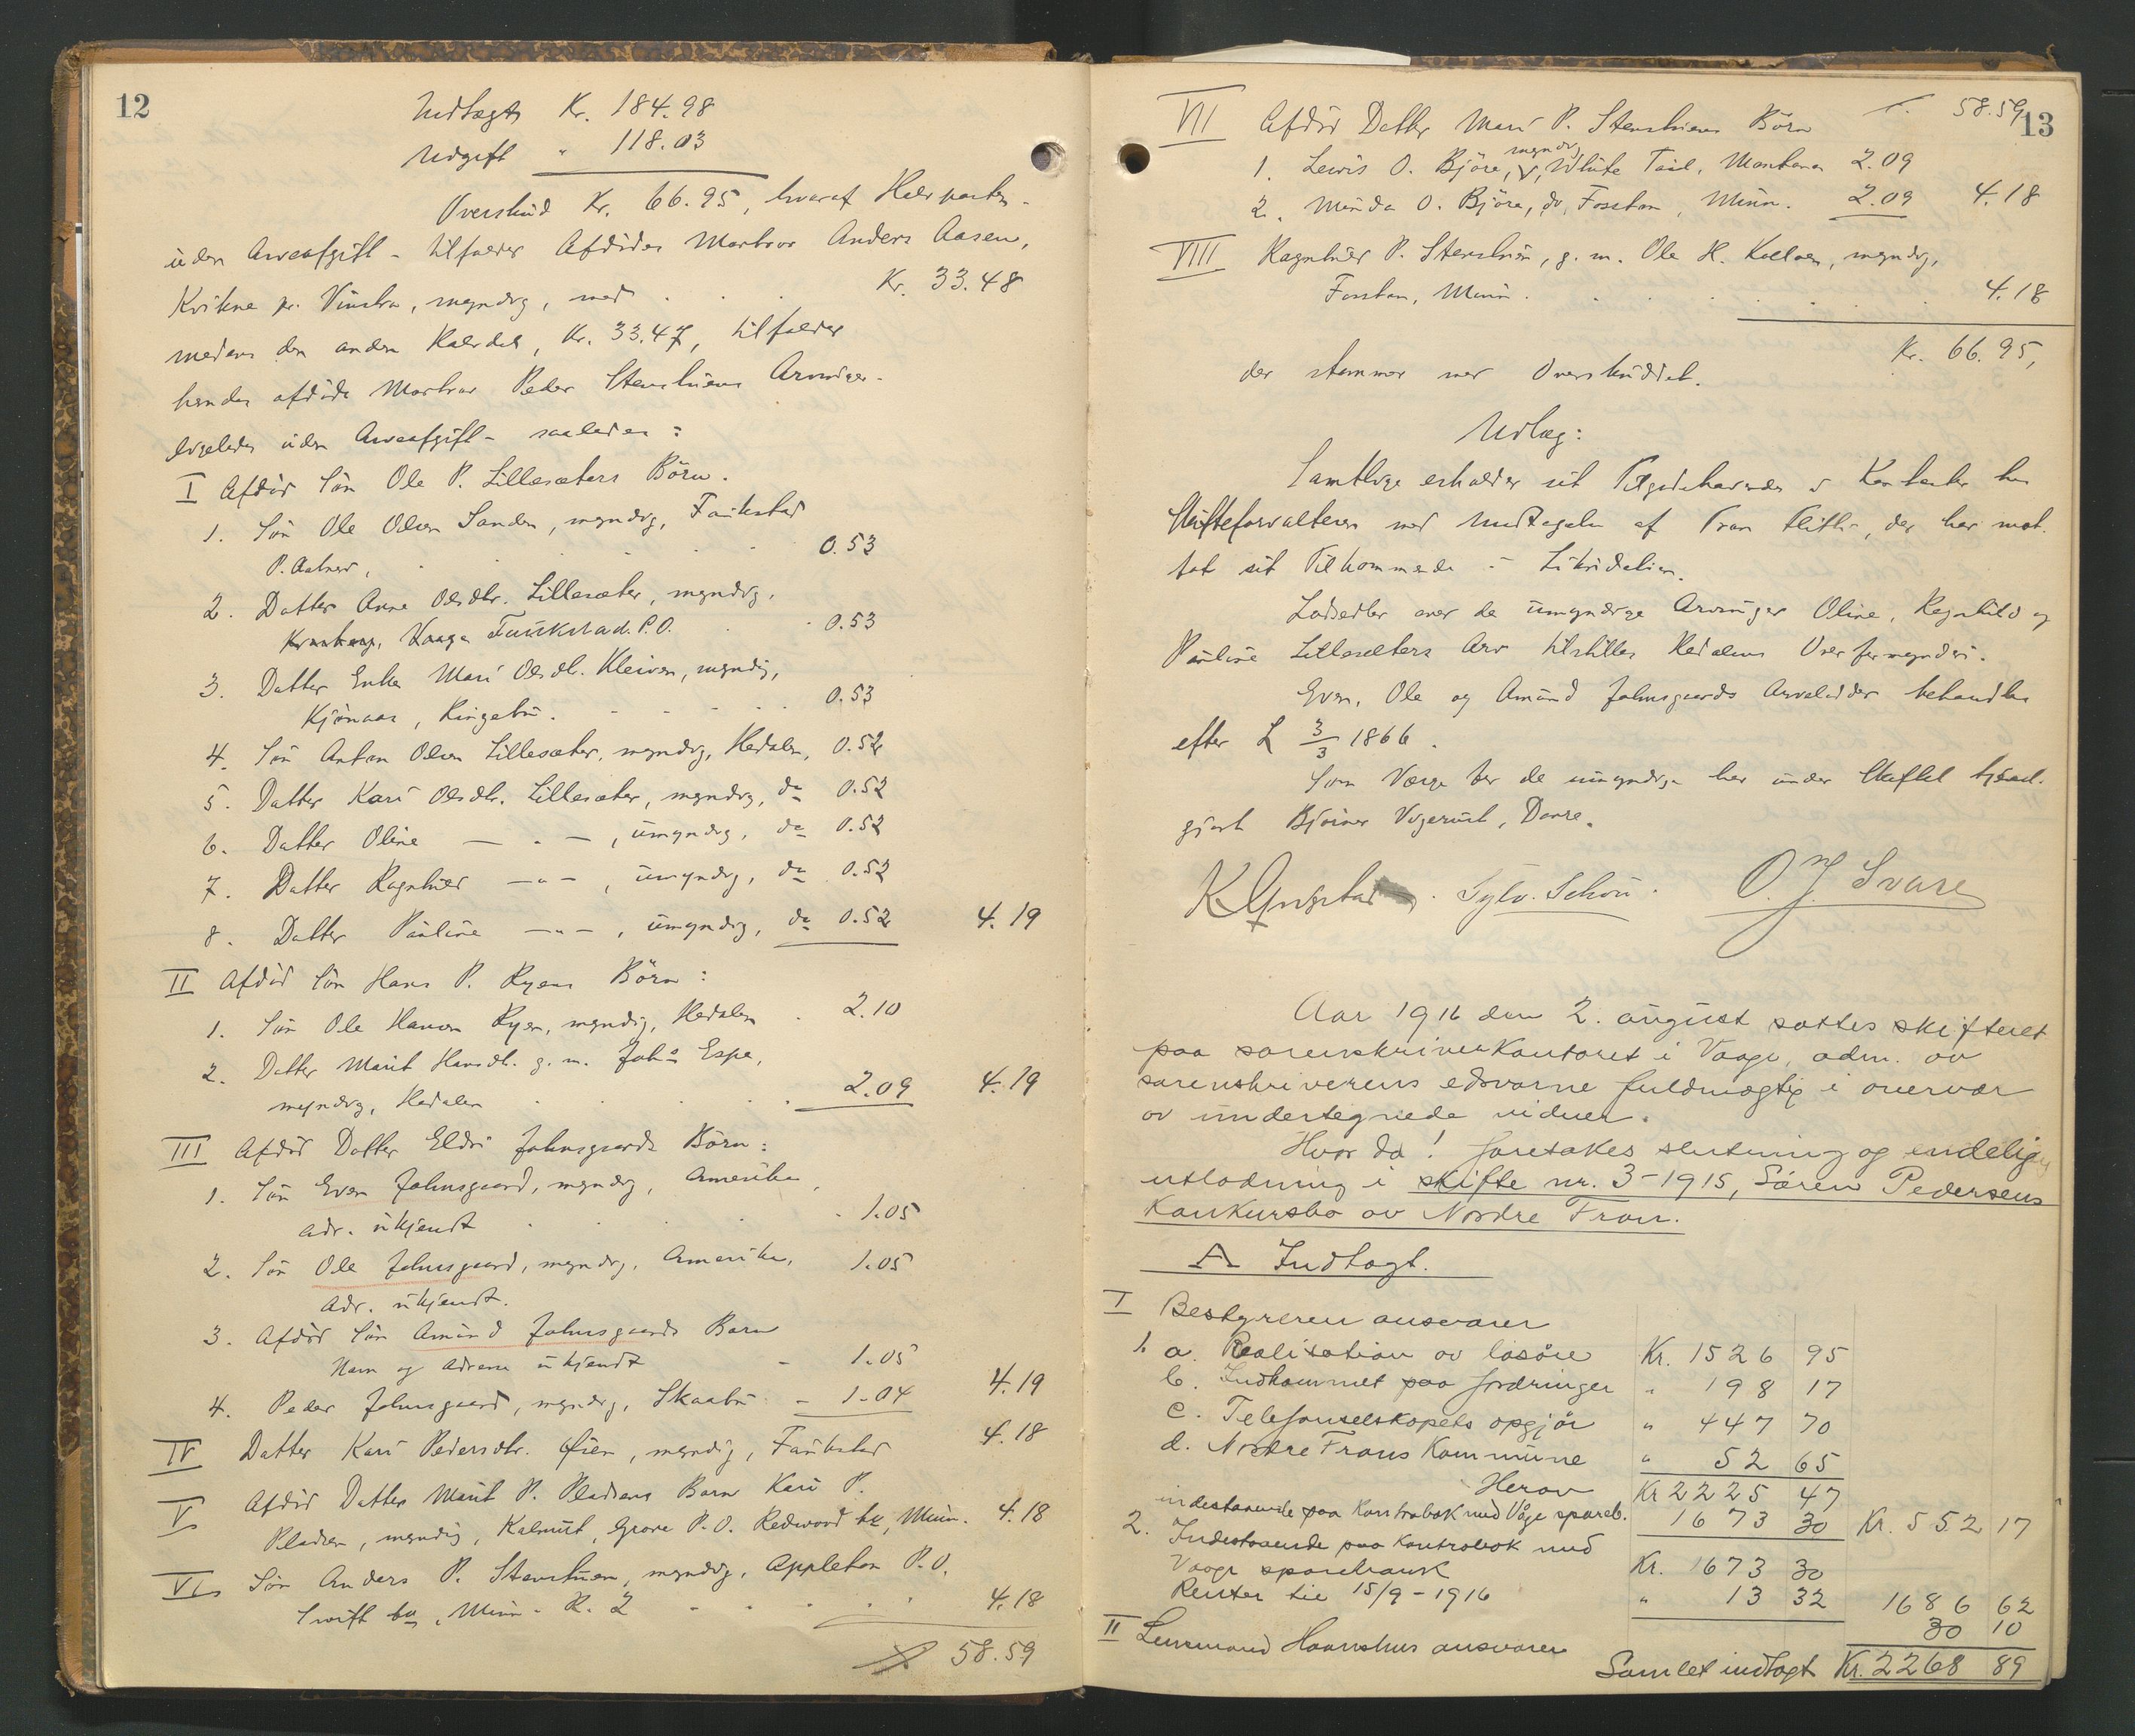 12
Indtægt Kr. 184.98
Udgift " 118.03
Overskud Kr. 66.95, hvoraf Halvparten -
uden Arveafgift - tilfalder Afdødes Morbror Anders Aasen,
Kvikne pr. Vinstra, myndig, med . . . Kr. 33.48
medens den anden Halvdel, Kr. 33.47, tilfalder
hendes afdøde Morbror Peder Stenstuens Arvinger -
ligeledes uden Arveafgift - saaledes:
I Afdød Søn Ole P. Lillesæters Börn.
1. Søn Ole Olsen Sanden, myndig, Faukstad
P. Aabner, . . . 0.53
2. Datter Anne Olsdtr. Lillesæter, myndig,
Faukstad. P.O. . . 0.53
3. Datter Enke Mari Olsdtr. Kleiven, myndig,
Kjönaas, Ringebu. - - - 0.53
4. Søn Anton Olsen Lillesæter, myndig, Hedalen, 0.52
5. Datter Kari Olsdtr. Lillesæter, myndig, do 0.52
6. Datter Oline — " — , umyndig, do 0.52
7. Datter Ragnhild — " — , umyndig, do 0.52
8. Datter Pauline — " — , umyndig, do 0.52 4.19
II Afdød Søn Hans P. Ryens Börn:
1. Søn Ole Hansen Ryen, myndig, Hedalen . 2.10
2. Datter Marit Hansdtr. g. m. Johs Espe,
myndig, Hedalen . . . 2.09 4.19
III Afdød Datter Eldri Johnsgaards Börn:
1. Søn Even Johnsgaard, myndig, Amerika,
adr. ukjendt . . . 1.05
2. Søn Ole Johnsgaard, myndig, Amerika, 1.05
adr. ukjendt.
3. Afdød Søn Amund Johnsgaards Barn
Navn og Adresse ukjendt - 1.05
4. Peder Johnsgaard, myndig, Skaabu - 1.04 4.19
IV Datter Kari Pedersdtr. Öien, myndig, Faukstad 4.18
V Afdød Datter Marit P. Pladsens Barn Kari P.
Pladsen, myndig, Kalmut, Grove P.O. Redwood Co, Minn. 4.18
VI Søn Anders P. Stenstuen, myndig, Appleton P.O.
Swift Co, Minn. R. 2 - - . . . 4.18
58.59
13
58.59
VII Afdød Datter Mari P. Stenstuens Börn
myndig
1. Lewis O. Björe, V, White Tail, Montana 2.09
2. Minda O. Björe, do, Fosston, Minn. 2.09 4.18
VIII Ragnhild P. Stenstuen, g. m. Ole H. Kolloen, myndig,
Fosston, Minn. . . . . . . 4.18
Kr. 66.95,
der stemmer med Overskuddet.
Udlæg:
Samtlige erholder sit Tilgodehavende i Kontanter hos
Skifteforvalteren med Undtagelse af Fron Elittr., der har mot-
tat sit Tilkommende i Likvidation.
Lodsedler over de umyndige Arvinger Oline, Ragnhild og
Pauline Lillesæters Arv tilstilles Hedalens Overformynderi.
Even, Ole og Amund Johnsgaards Arvelodder behandles
efter L 3/3 1866.
Som Værge for de umyndige har under Skiftet
gjort Björner Vigerust, Dovre.
Sylv. Schou. O. J. Svare
Aar 1916 den 2. august sattes skifteret
paa sorenskriverkontoret i Vaage, adm. av
sorenskriverens edsvorne fuldmægtig i overvær
av undertegnede vidner.
Hvor da! foretokes slutning og endelig
utlodning i skifte nr. 3-1915, Sören Pedersens
Konkursbo av Nordre Fron.
A Indtægt.
I Bestyreren ansvarer
1. a. Realisation av løsøre Kr. 1526 95
b. Indkommet paa fordringer " 198 17
c. Telefonselskapets opgjör " 447 70
d. Nordre Frons Kommune " 52 65
Herav Kr 2225 47
indestaaende paa Kontrabok med Våge spareb. 1673 30 Kr. 552 17
2. Indestaaende paa Kontrabok med
Vaage sparebank Kr. 1673 30
Renter til 15/9-1916 " 13 32 1686 62
II Lensmand Haanshus ansvarer 30 10
Samlet indtægt Kr. 2268 89